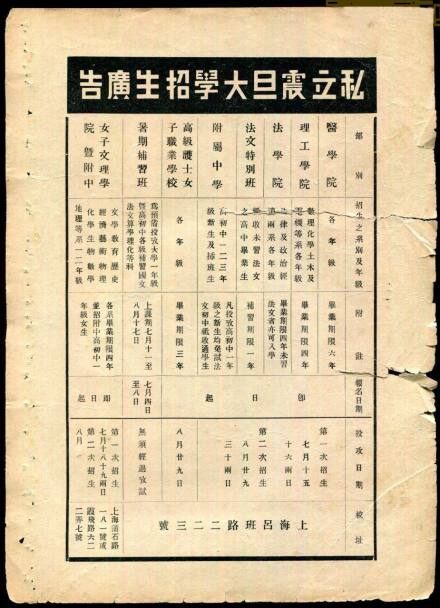 私立震旦大學招生廣吿
部別
招生之系別及年級
附註
報名日期
投攷日期
校址
醫學院
各年級
畢業期限六年
理工學院
數理化學土木及
電機等系各年級
畢業期限四年
法學院
法律及政治經
濟兩系各年級
畢業期限四年未習
法文者亦可入學
法文特別班
收未習法文
之高中畢業生
補習期限一年
附屬中學
高初中一二三年
級新生及插班生
凡投攷高初中一年
級之新生均免試法
文初中祇收通學生
即日起
第一次招生
七月十五
十六兩日
第二次招生
八月廿九
三十兩日
高級護士女
子職業學校
各年級
畢業期限三年
八月廿九日
暑期補習班
爲預備投攷大學一年級
暨高初中各級補習國文
法文算學理化等科
上課期七月十一至
八月十七日
七月四日
至八日
無須經過攷試
上海呂班路二二三號
女子文理學
院暨附中
文學教育歷史
經濟藝術物理
化學生物數學
地理等系一二年級
各系畢業期限四年
並招附中高初中一
年級女生
即日起
第一次招生
七月十八十九兩日
第二次招生
八月
上海蒲石路
一八一號或
霞飛路六二
二弄七號